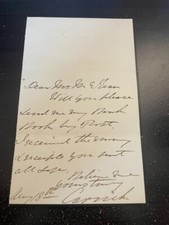 Dear
Will you please
send me my Bank
Book by Post
I received the money
receipts you sent
all safe.
Believe me
yours truly
May 18th